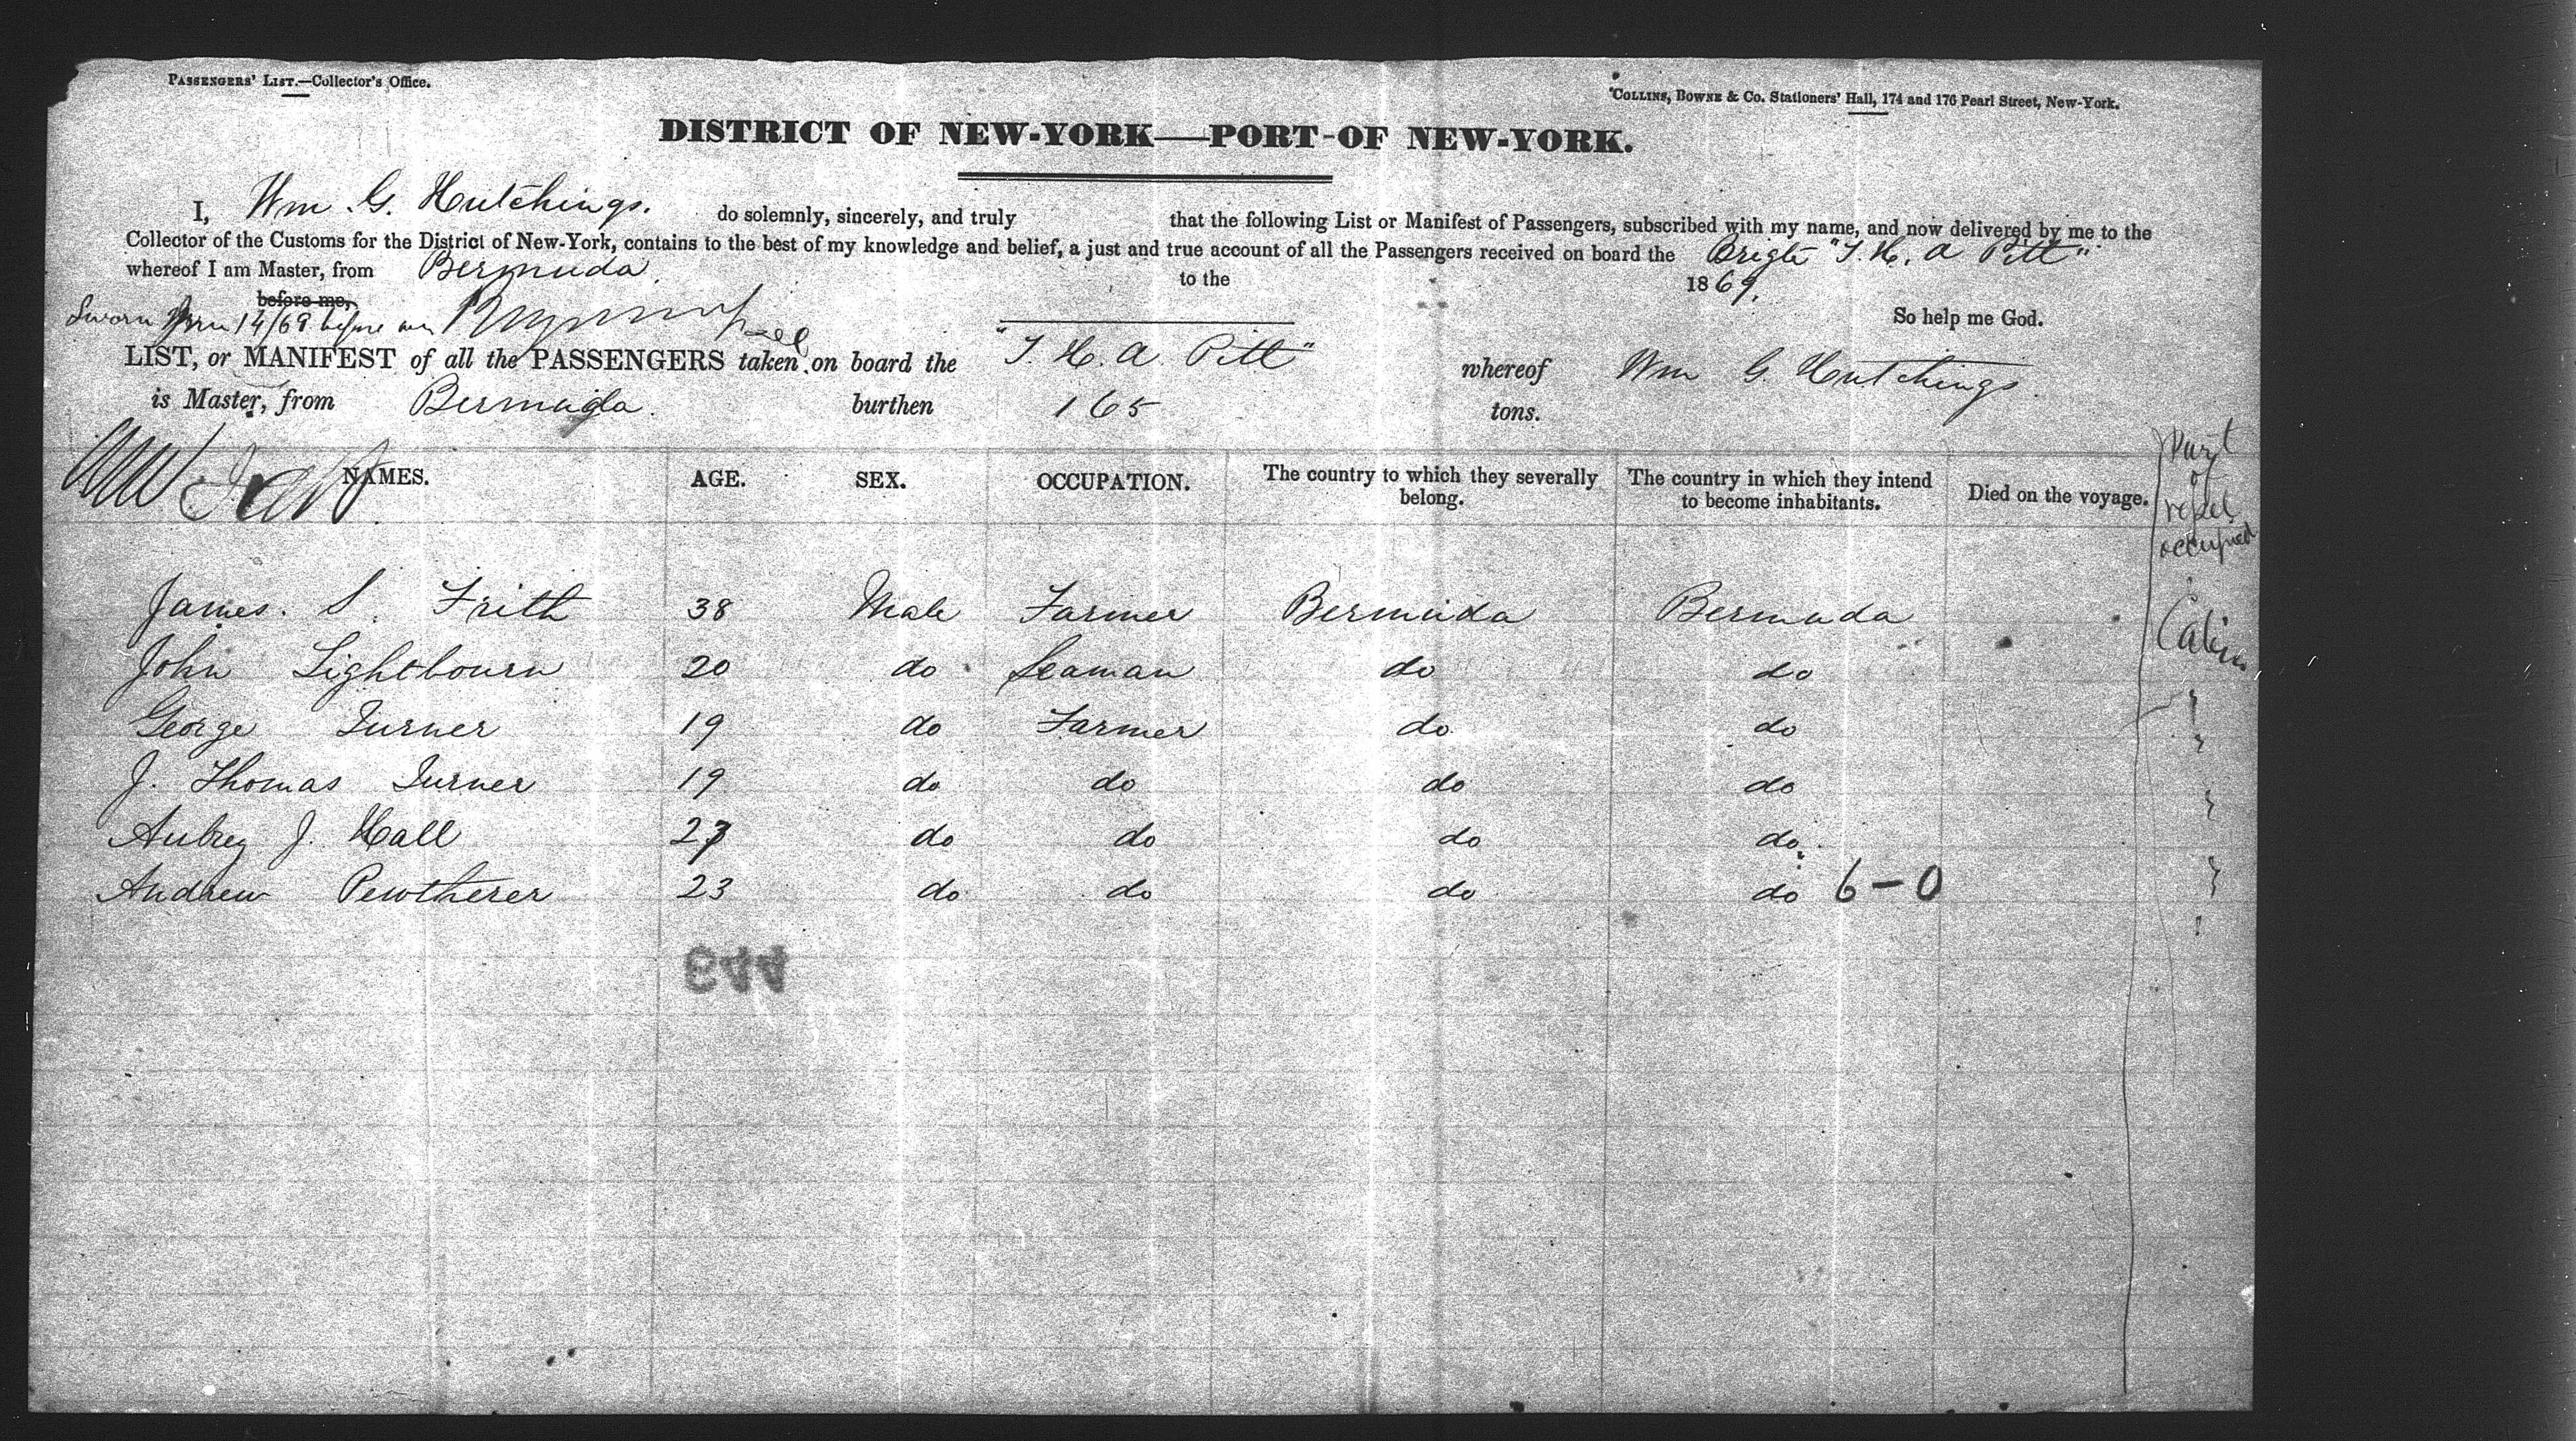 PASSENGERS' LIST.—Collector's Office.
COLLINS, BOWNE & Co. Stationers' Hall, 174 and 176 Pearl Street, New-York.
DISTRICT OF NEW-YORK—PORT OF NEW-YORK.
I, Wm. G. Hutchings. do solemnly, sincerely, and truly that the following List or Manifest of Passengers, subscribed with my name, and now delivered by me to the
Collector of the Customs for the District of New-York, contains to the best of my knowledge and belief, a just and true account of all the Passengers received on board the Brigt "T. H. A Pitt"
whereof I am Master, from Bermuda to the 1869.
before me,
Sworn 14/69 before me
So help me God.
LIST, or MANIFEST of all the PASSENGERS taken on board the "T. H. A Pitt" whereof Wm G. Hutchings
is Master, from Bermuda. burthen 165 tons.
NAMES. AGE. SEX. OCCUPATION. The country to which they severally belong. The country in which they intend to become inhabitants. Died on the voyage. Part of vessel occupied
James. S. Frith 38 Male Farmer Bermuda Bermuda Cabin
John Lightbourn 20 do Seaman do do "
George Turner 19 do Farmer do do "
J. Thomas Turner 19 do do do do "
Aubrey J. Hall 27 do do do do "
Andrew Pewtherer 23 do do do do 6-0 "
944